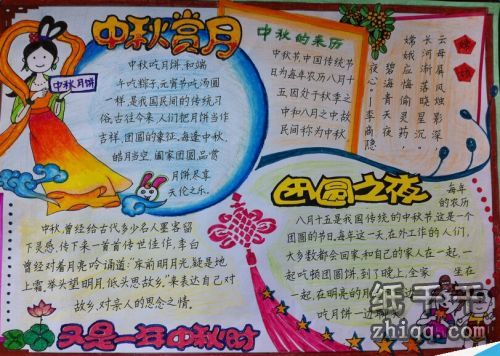 中秋赏月
中秋月饼
中秋吃月饼和端
午吃粽子,元宵节吃汤圆
一样,是我国民间的传统习
俗,古往今来,人们把月饼当作
吉祥,团圆的象征,每逢中秋,
皓月当空,阖家团圆,品
月饼尽享
天伦之乐.
中秋的来历
中秋节,中国传统节
日为每年农历八月十
五因处于秋季之
中和八月之中故
民间称为中秋
嫦娥
云母屏风烛影深,
长河渐落晓星沉,
嫦娥应悔偷灵药,
碧海青天
夜心——李商隐
中秋,曾经给古代多少名人墨客留
下灵感,传下来一首首传世佳作,李白
曾经对着月亮吟诵道:"床前明月光,疑是地
上霜,举头望明月,低头思故乡."来表达自己对
故乡,对亲人的思念之情.
又是一年中秋时
团圆之夜
每年
的农历
八月十五是我国传统的中秋节,这是一个
团圆的节日,每年这一天,在外工作的人们,
大多数都会回家,和自己的家人在一起,一
起吃顿团圆饼,到了晚上,全家 坐在
一起,在明亮的月
吃月饼一边
纸千千
zhiqq.com